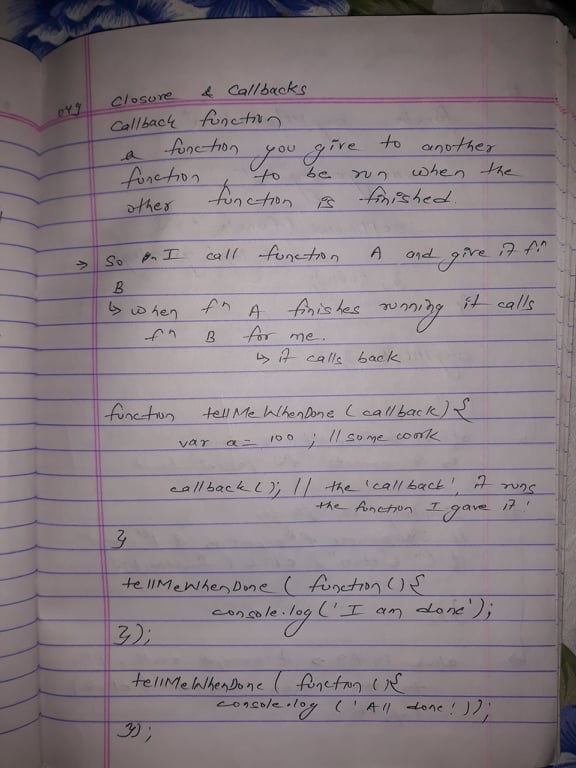 049 Closure & Callbacks
Callback function
a function you give to another
function, to be run when the
other function is finished.
→ So I call function A and give it fⁿ
B
↳ when fⁿ A finishes running it calls
fⁿ B for me.
↳ it calls back
function tellMeWhenDone (callback) {
var a = 100 ; // some work
callback(); // the 'callback', it runs
the function I gave it!
}
tellMeWhenDone ( function () {
console.log ('I am done');
});
tellMeWhenDone ( function () {
console.log ('All done!');
});